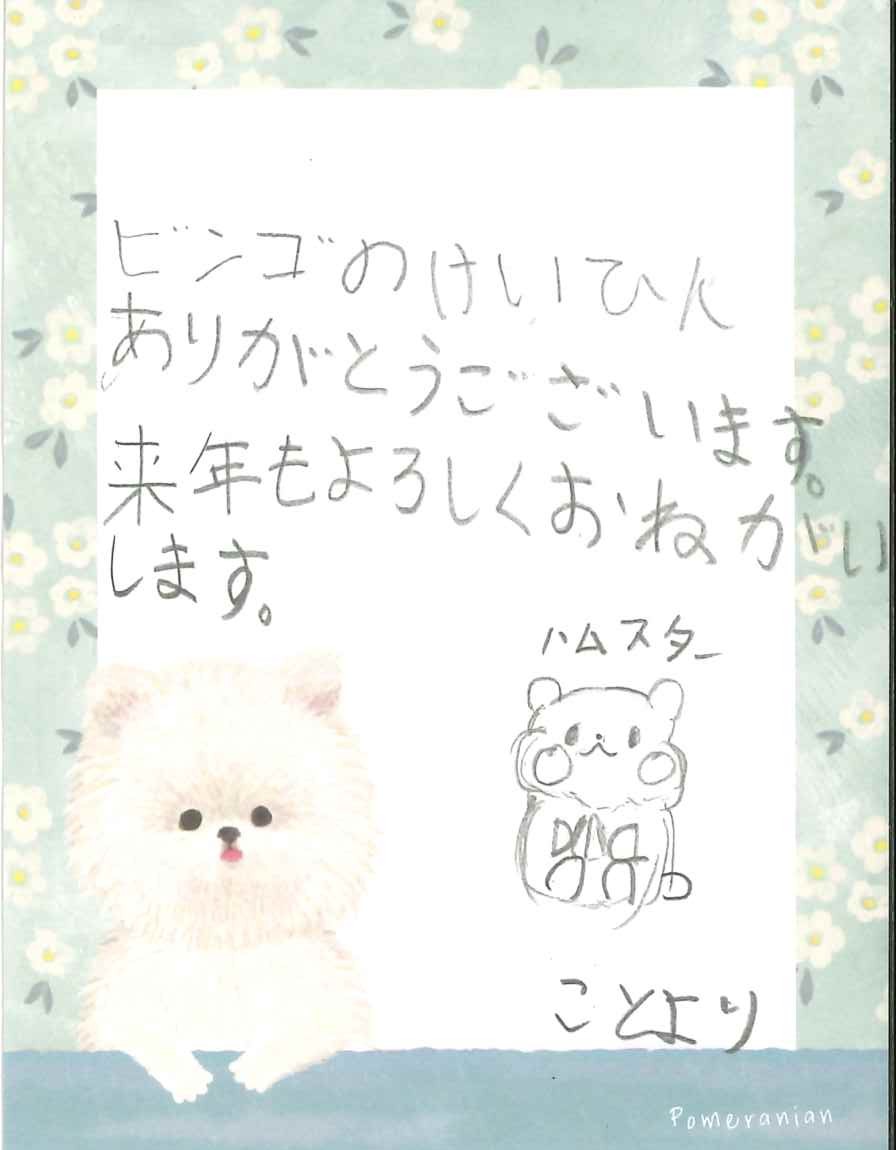 ビンゴのけいひん
ありがとうございます。
来年もよろしくおねがい
します。
ハムスター
ことより
Pomeranian